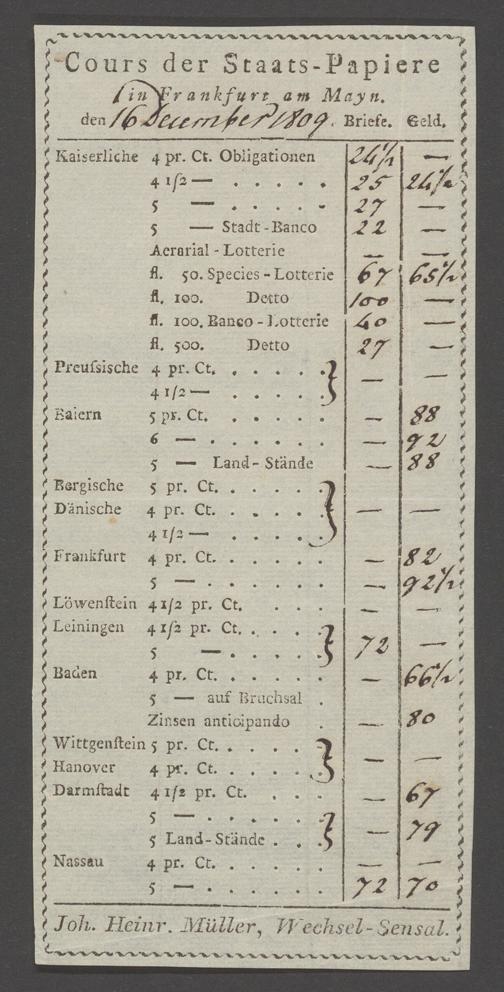 Cours der Staats-Papiere
in Frankfurt am Mayn.
den 16 December 1809. Briefe. Geld.
Kaiserliche 4 pr. Ct. Obligationen 24 1/2 —
4 1/2 — . . . . . 25 24 1/2
5 — . . . . . 27 —
5 — Stadt-Banco 22 —
Aerarial-Lotterie — —
fl. 50. Species-Lotterie 67 65 1/2
fl. 100. Detto 100 —
fl. 100. Banco-Lotterie 40 —
fl. 500. Detto 27 —
Preuſsische 4 pr. Ct. . . . . . } — —
4 1/2 — . . . . .
Baiern 5 pr. Ct. . . . . . — 88
6 — . . . . . . — 92
5 — Land-Stände — 88
Bergische 5 pr. Ct. . . . . }
Dänische 4 pr. Ct. . . . . — —
4 1/2 — . . . . .
Frankfurt 4 pr. Ct. . . . . . — 82
5 — . . . . . . — 92 1/2
Löwenſtein 4 1/2 pr. Ct. . . . . — —
Leiningen 4 1/2 pr. Ct. . . . . }
5 — . . . . . 72 —
Baden 4 pr. Ct. . . . . . — 66 1/2
5 — auf Bruchsal .
Zinsen anticipando . — 80
Wittgenſtein 5 pr. Ct. . . . . }
Hanover 4 pr. Ct. . . . . — —
Darmſtadt 4 1/2 pr. Ct. . . . — 67
5 — . . . . . . }
5 Land-Stände . . . — 79
Nassau 4 pr. Ct. . . . . . — —
5 — . . . . . . 72 70
Joh. Heinr. Müller, Wechsel-Sensal.